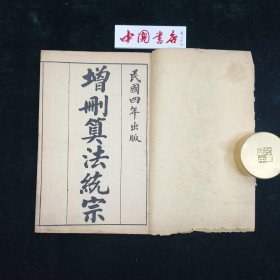 中國書店
民國四年出版
增刪算法統宗